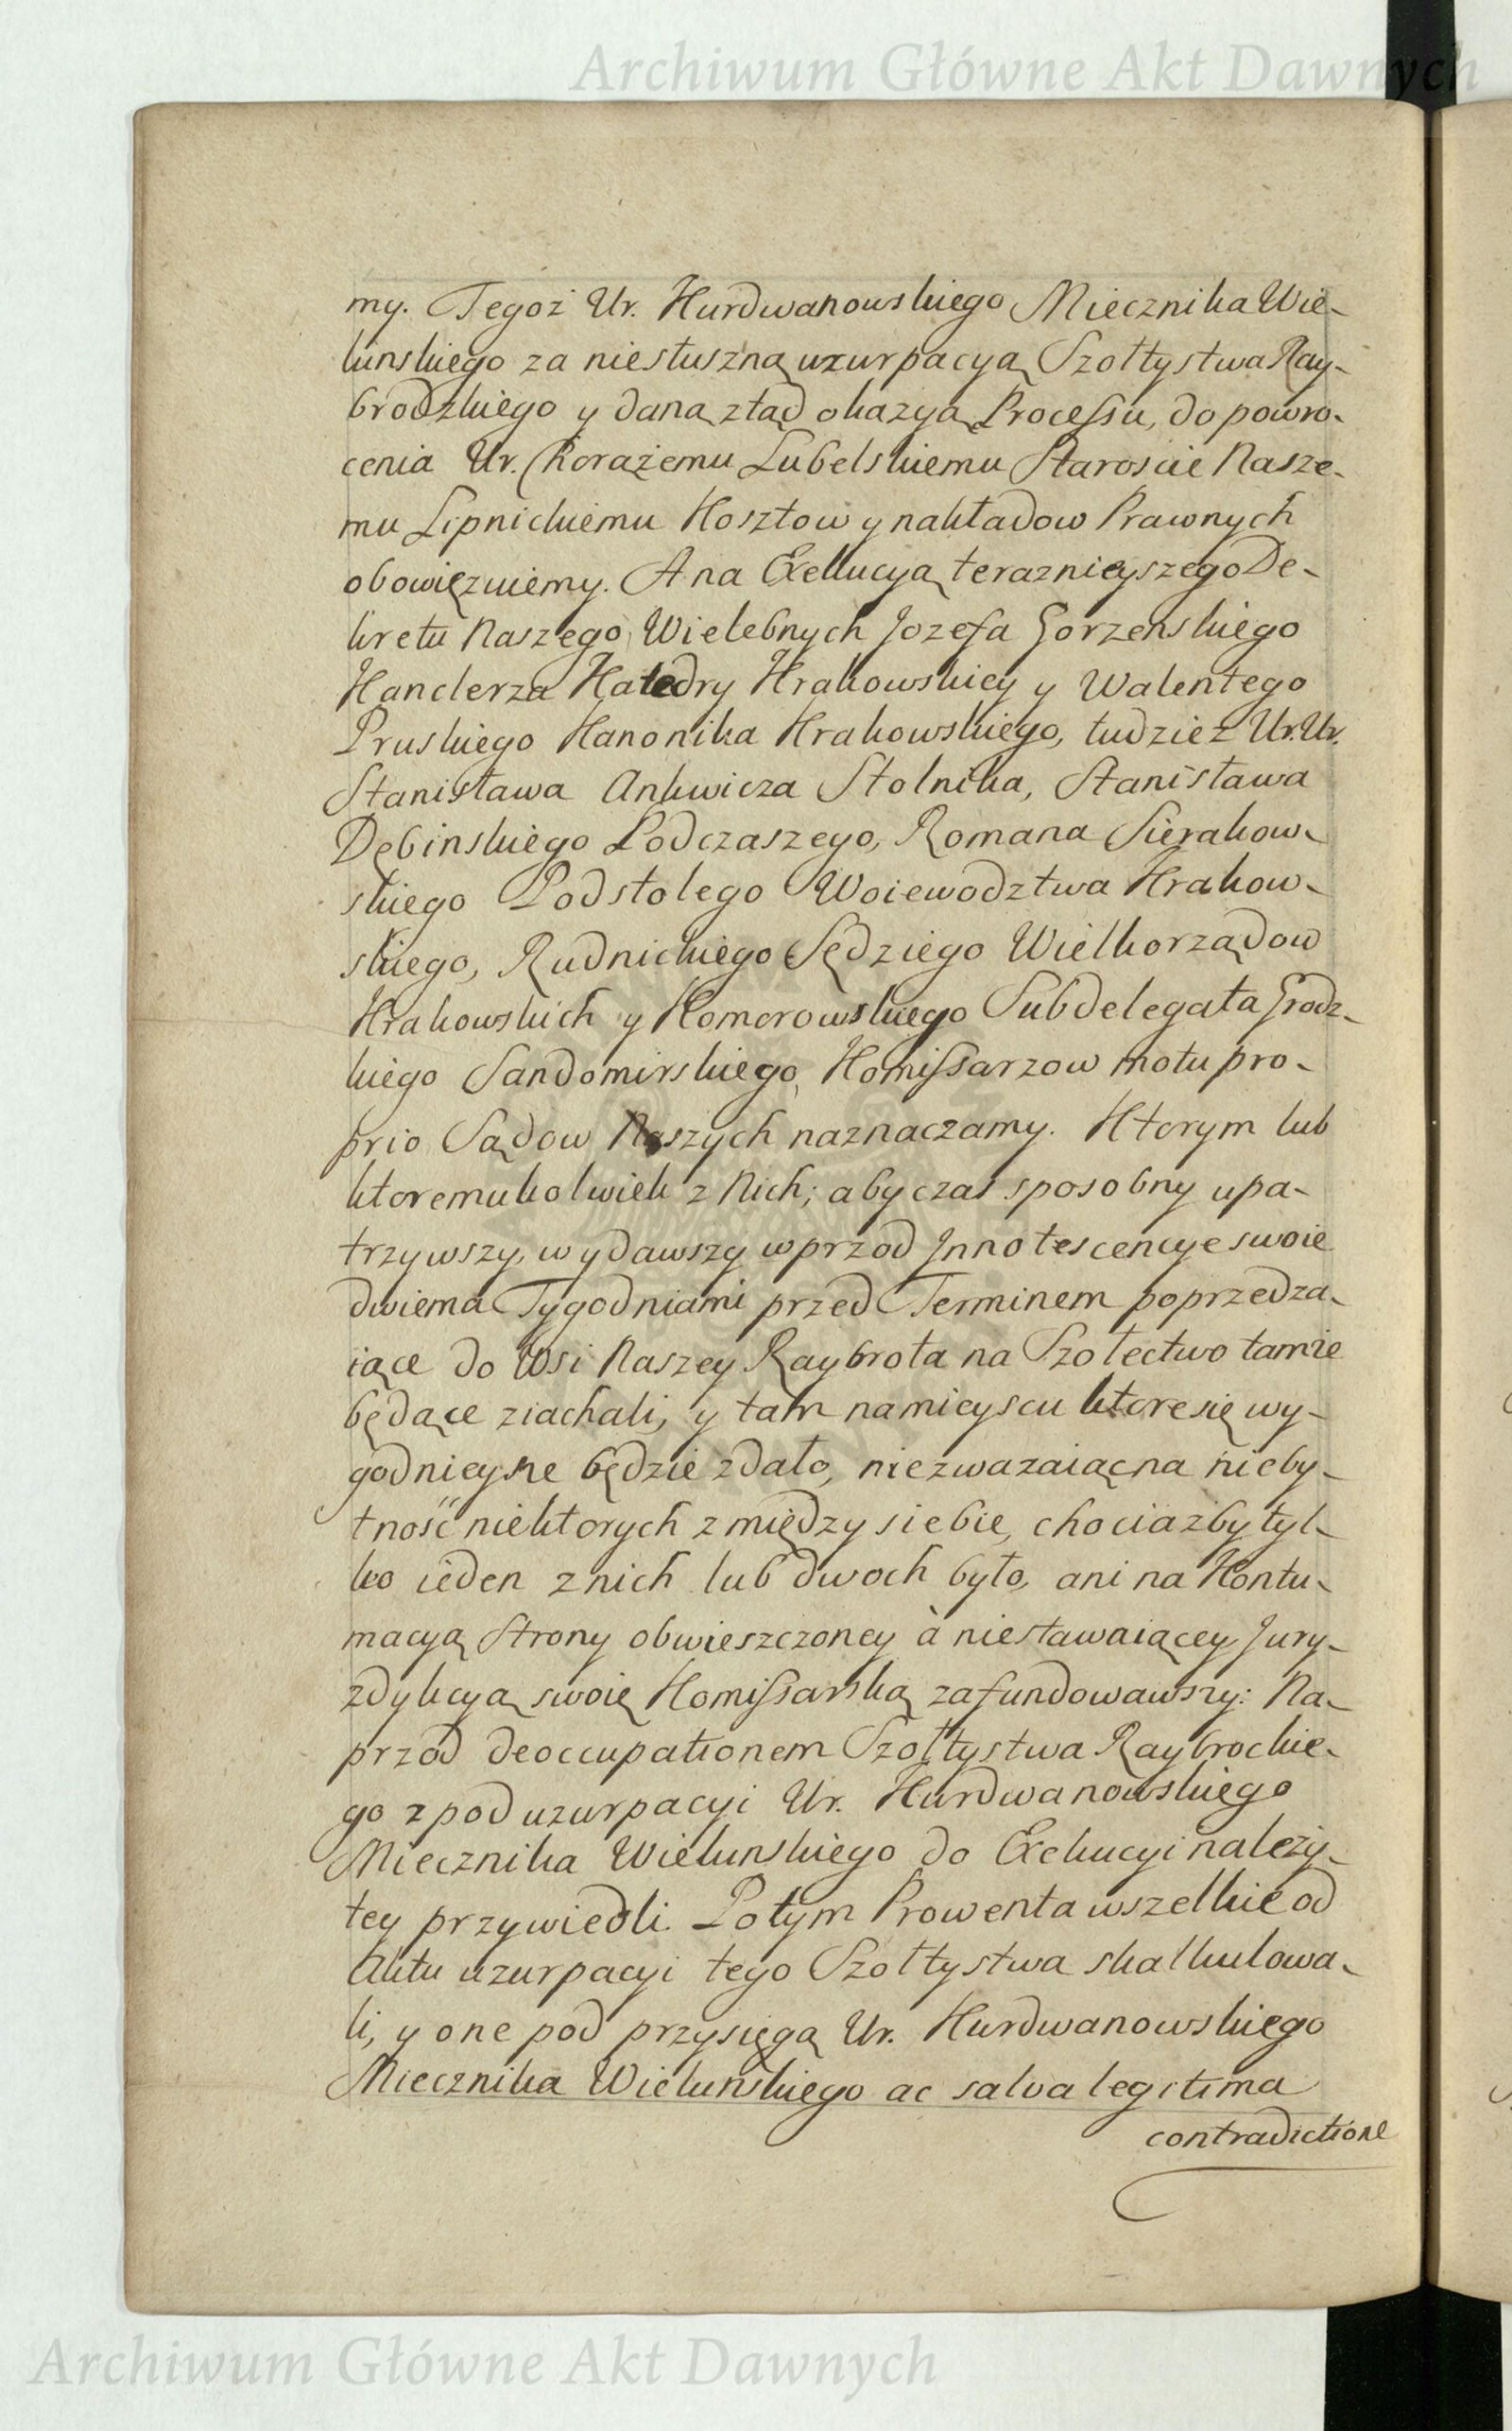 Archiwum Główne Akt Dawnych
my. Tegoż Ur. Kurdwanowskiego Miecznika Wie-
lunskiego za niesłuszną uzurpacyą Szołtystwa Ray-
brodzkiego y daną ztąd okazyą Processu, do powro-
cenia Ur. Chorążemu Lubelskiemu Staroscie Nasze-
mu Lipnickiemu Kosztow y nakładow Prawnych
obowięzuiemy. A na Exekucyą teraznieyszego De-
kretu Naszego, Wielebnych Jozefa Gorzenskiego
Kanclerza Katedry Krakowskiey y Walentego
Pruskiego Kanonika Krakowskiego, tudzież Ur. Ur.
Stanisława Ankwicza Stolnika, Stanisława
Dębinskiego Podczaszego, Romana Sierakow-
skiego Podstolego Woiewodztwa Krakow-
skiego, Rudnickiego Sędziego Wielkorządow
Krakowskich y Komorowskiego Subdelegata Grodz-
kiego Sandomirskiego, Komissarzow motu pro-
prio Sądow Naszych naznaczamy. Ktorym lub
ktoremukolwiek z Nich; aby czas sposobny upa-
trzywszy, wydawszy wprzod Jnnotescencye swoie
dwiema Tygodniami przed Terminem poprzedza-
iące do Wsi Naszey Raybrota na Szołectwo tamże
będące ziachali, y tam na mieyscu ktore się wy-
godnieysze będzie zdało, niezwazaiąc na nieby-
tność niektorych z między siebie, chociażby tyl-
ko ieden z nich lub dwoch było, ani na Kontu-
macyą Strony obwieszczoney à niestawaiącey, Jury-
zdykcyą swoię Komissarską zafundowawszy: Na-
przod deoccupationem Szołtystwa Raybrockie-
go z pod uzurpacyi Ur. Kurdwanowskiego
Miecznika Wielunskiego do Exekucyi należy-
tey przywiedli. Potym Prowenta wszelkie od
Aktu uzurpacyi tego Szołtystwa skalkulowa-
li, y one pod przysięgą Ur. Kurdwanowskiego
Miecznika Wielunskiego ac salva legitima
contradictione
Archiwum Główne Akt Dawnych